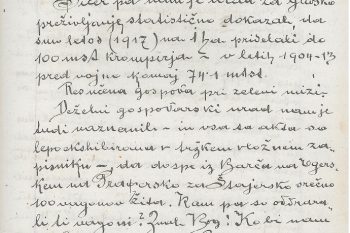 Sicer pa nam je urad za ljudsko
preživljanje statistično dokazal, da
smo letos (1917) na 1 ha pridelali do
100 mst krompirja – v letih 1904–13
pred vojno komaj 74·1 mtst.
Resnična gospoda pri zeleni mizi.
Deželni gospodarski urad nam je
tudi naznanil – in vsa ta akta so
lepo ekshibirana v tržkem vložnem za-
pisniku –, da dospe iz Barča na Oger-
skem za Štajersko srečno
100 vagonov žita. Kam pa so odfrara-
li ti vagoni? Znat Bog! Ko bi nam